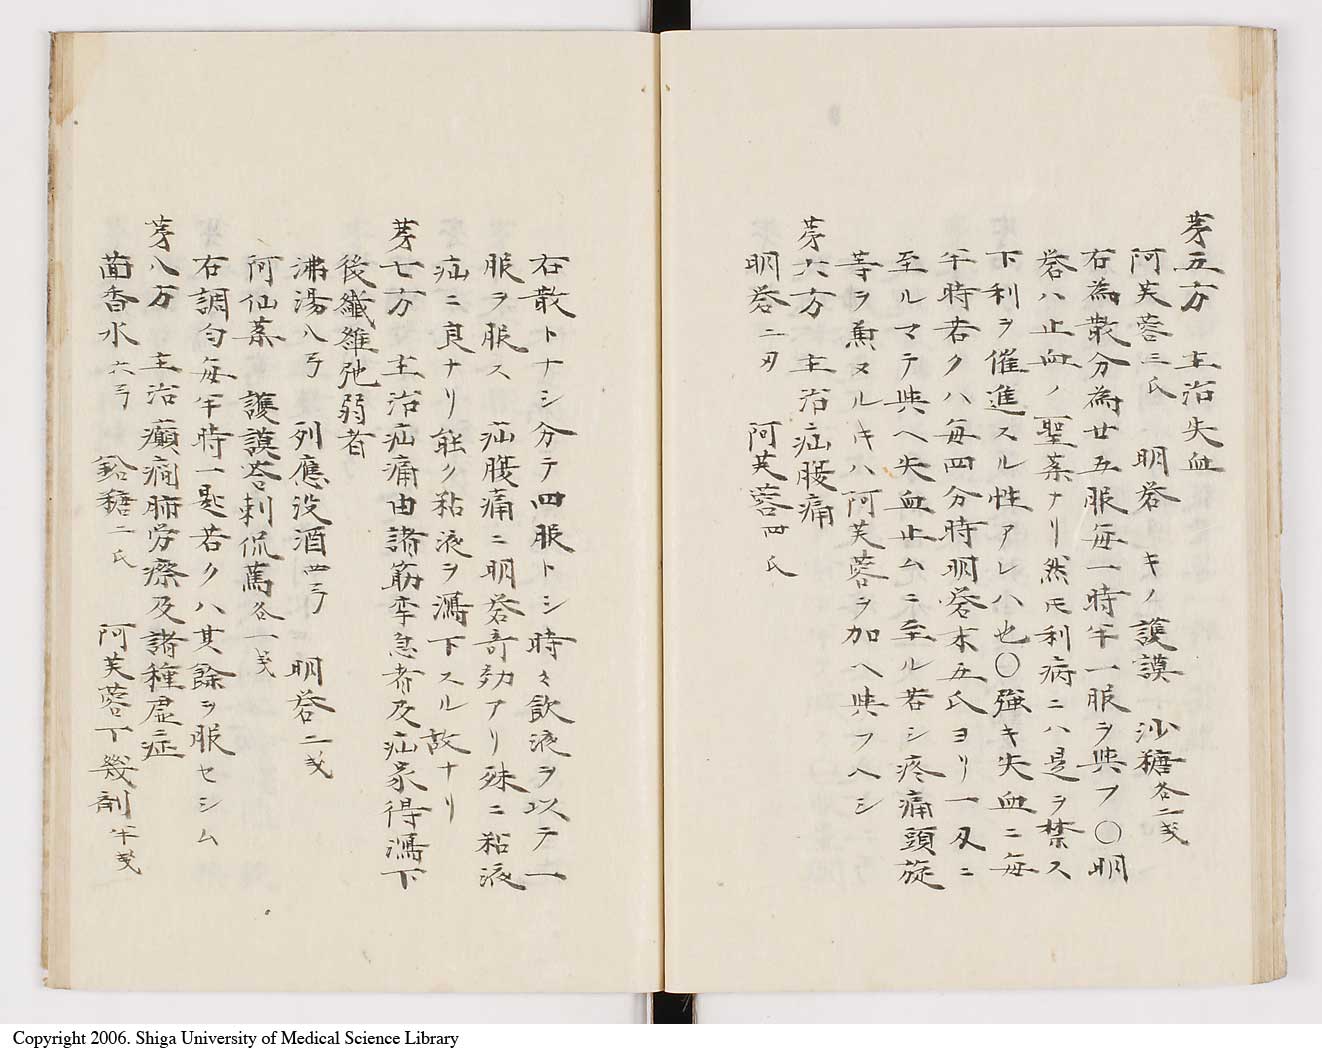 芽五方　主治失血
阿芙蓉三氏　明礬　キノ護謨　沙糖各二戔
右為散分為廿五服毎一時半一服ヲ與フ〇明
礬ハ止血ノ聖薬ナリ然𪜈利病ニハ是ヲ禁ス
下利ヲ催進スル性アレハ也〇強キ失血ニ毎
半時若クハ毎四分時明礬末五氏ヨリ一刄ニ
至ルマテ與ヘ失血止ムニ至ル若シ疼痛頭旋
等ヲ兼ヌルキハ阿芙蓉ヲ加ヘ與フヘシ
芽六方　主治疝腹痛
明礬二刄　阿芙蓉四氏
右散トナシ分テ四服トシ時々飲液ヲ以テ一
服ヲ服ス　疝腹痛ニ明礬竒効アリ殊ニ粘液
疝ニ良ナリ能ク粘液ヲ瀉下スル故ナリ
芽七方　主治疝痛由諸筋攣急者及疝家得瀉下
後纖維弛弱者
沸湯八弓　列應没酒四弓　明礬二戔
阿仙薬　護謨荅剌侃萬各一戔
右調匀毎半時一匙若クハ其餘ヲ服セシム
芽八方　主治癲癇肺労瘵及諸種虚症
茴香水六弓　鉛糖二氏　阿芙蓉丁幾剤半戔
Copyright 2006. Shiga University of Medical Science Library